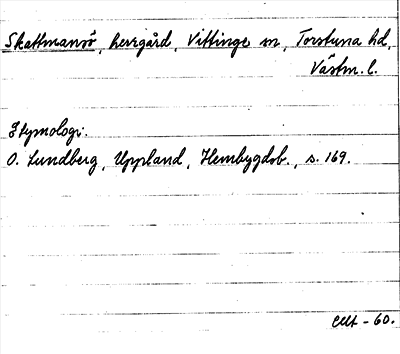 Skattmansö, herrgård, Vittinge sn, Torstuna hd,
Västm. l.
Etymologi.
O. Lundberg, Uppland, Hembygdsb., s. 169.
- 60.